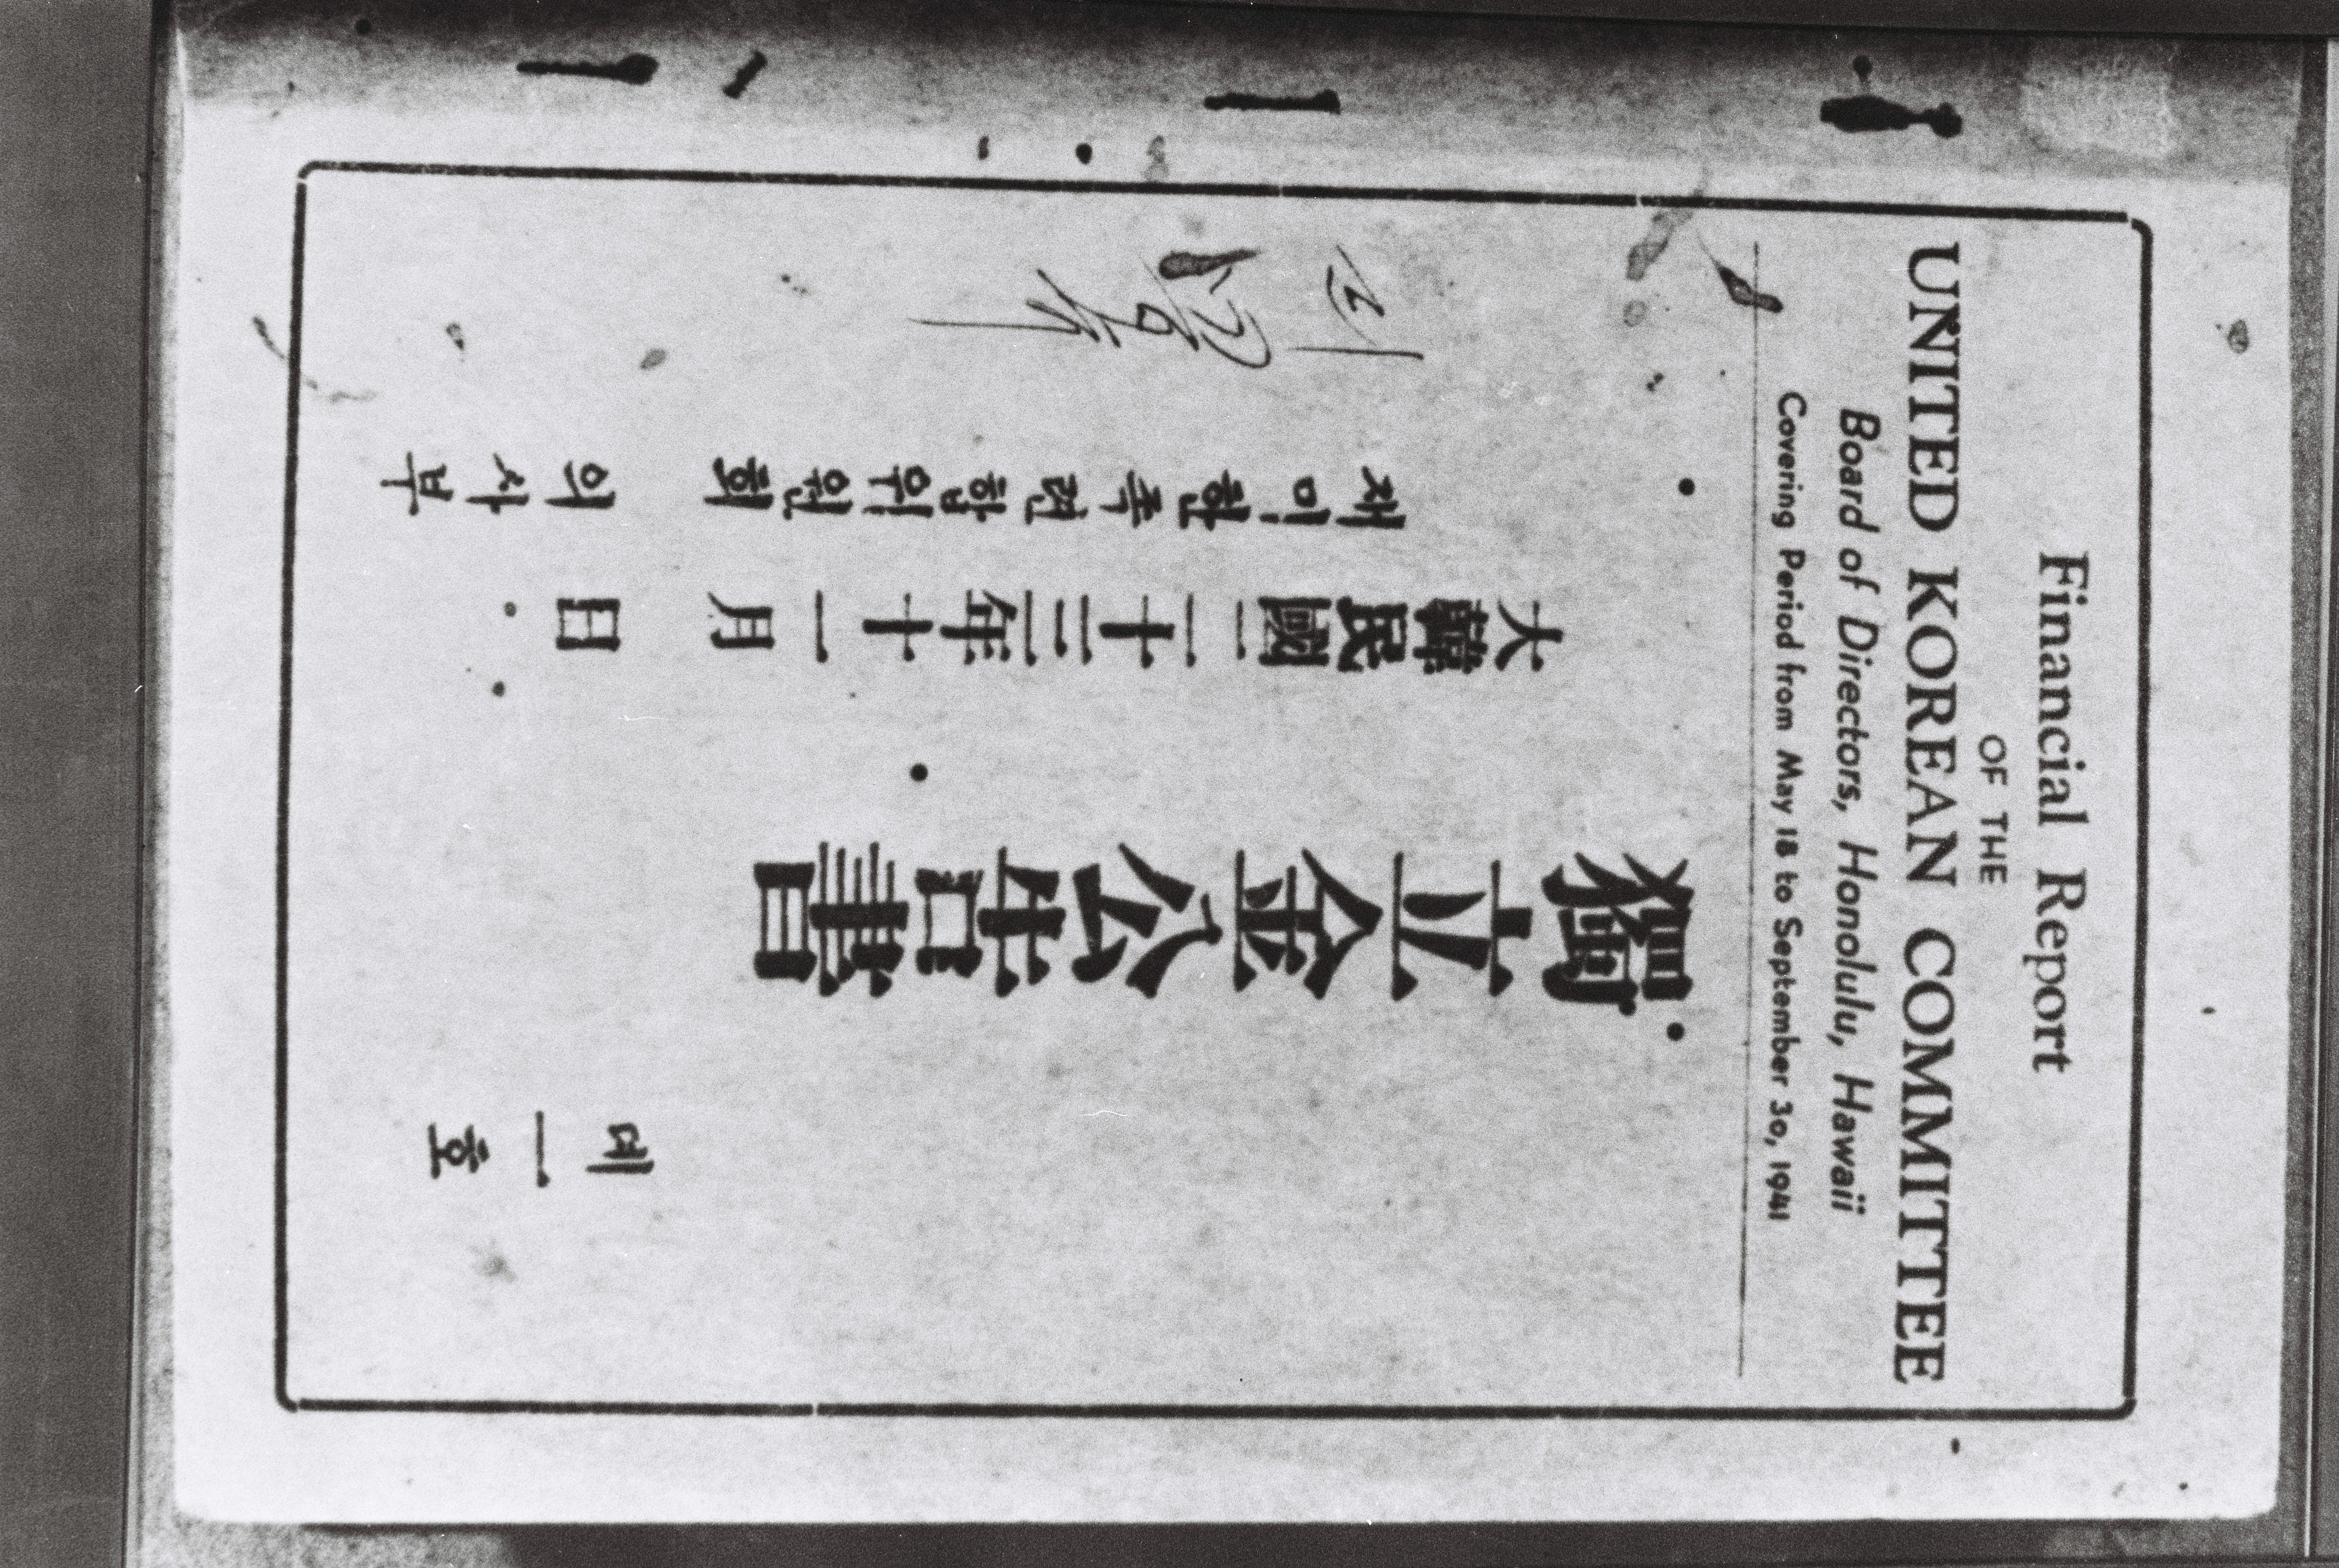 Financial Report
OF THE
UNITED KOREAN COMMITTEE
Board of Directors, Honolulu, Hawaii
Covering Period from May 18 to September 30, 1941
뎨一호
獨立金公告書
大韓民國二十三年十一月 日
재미한족련합위원회 의사부